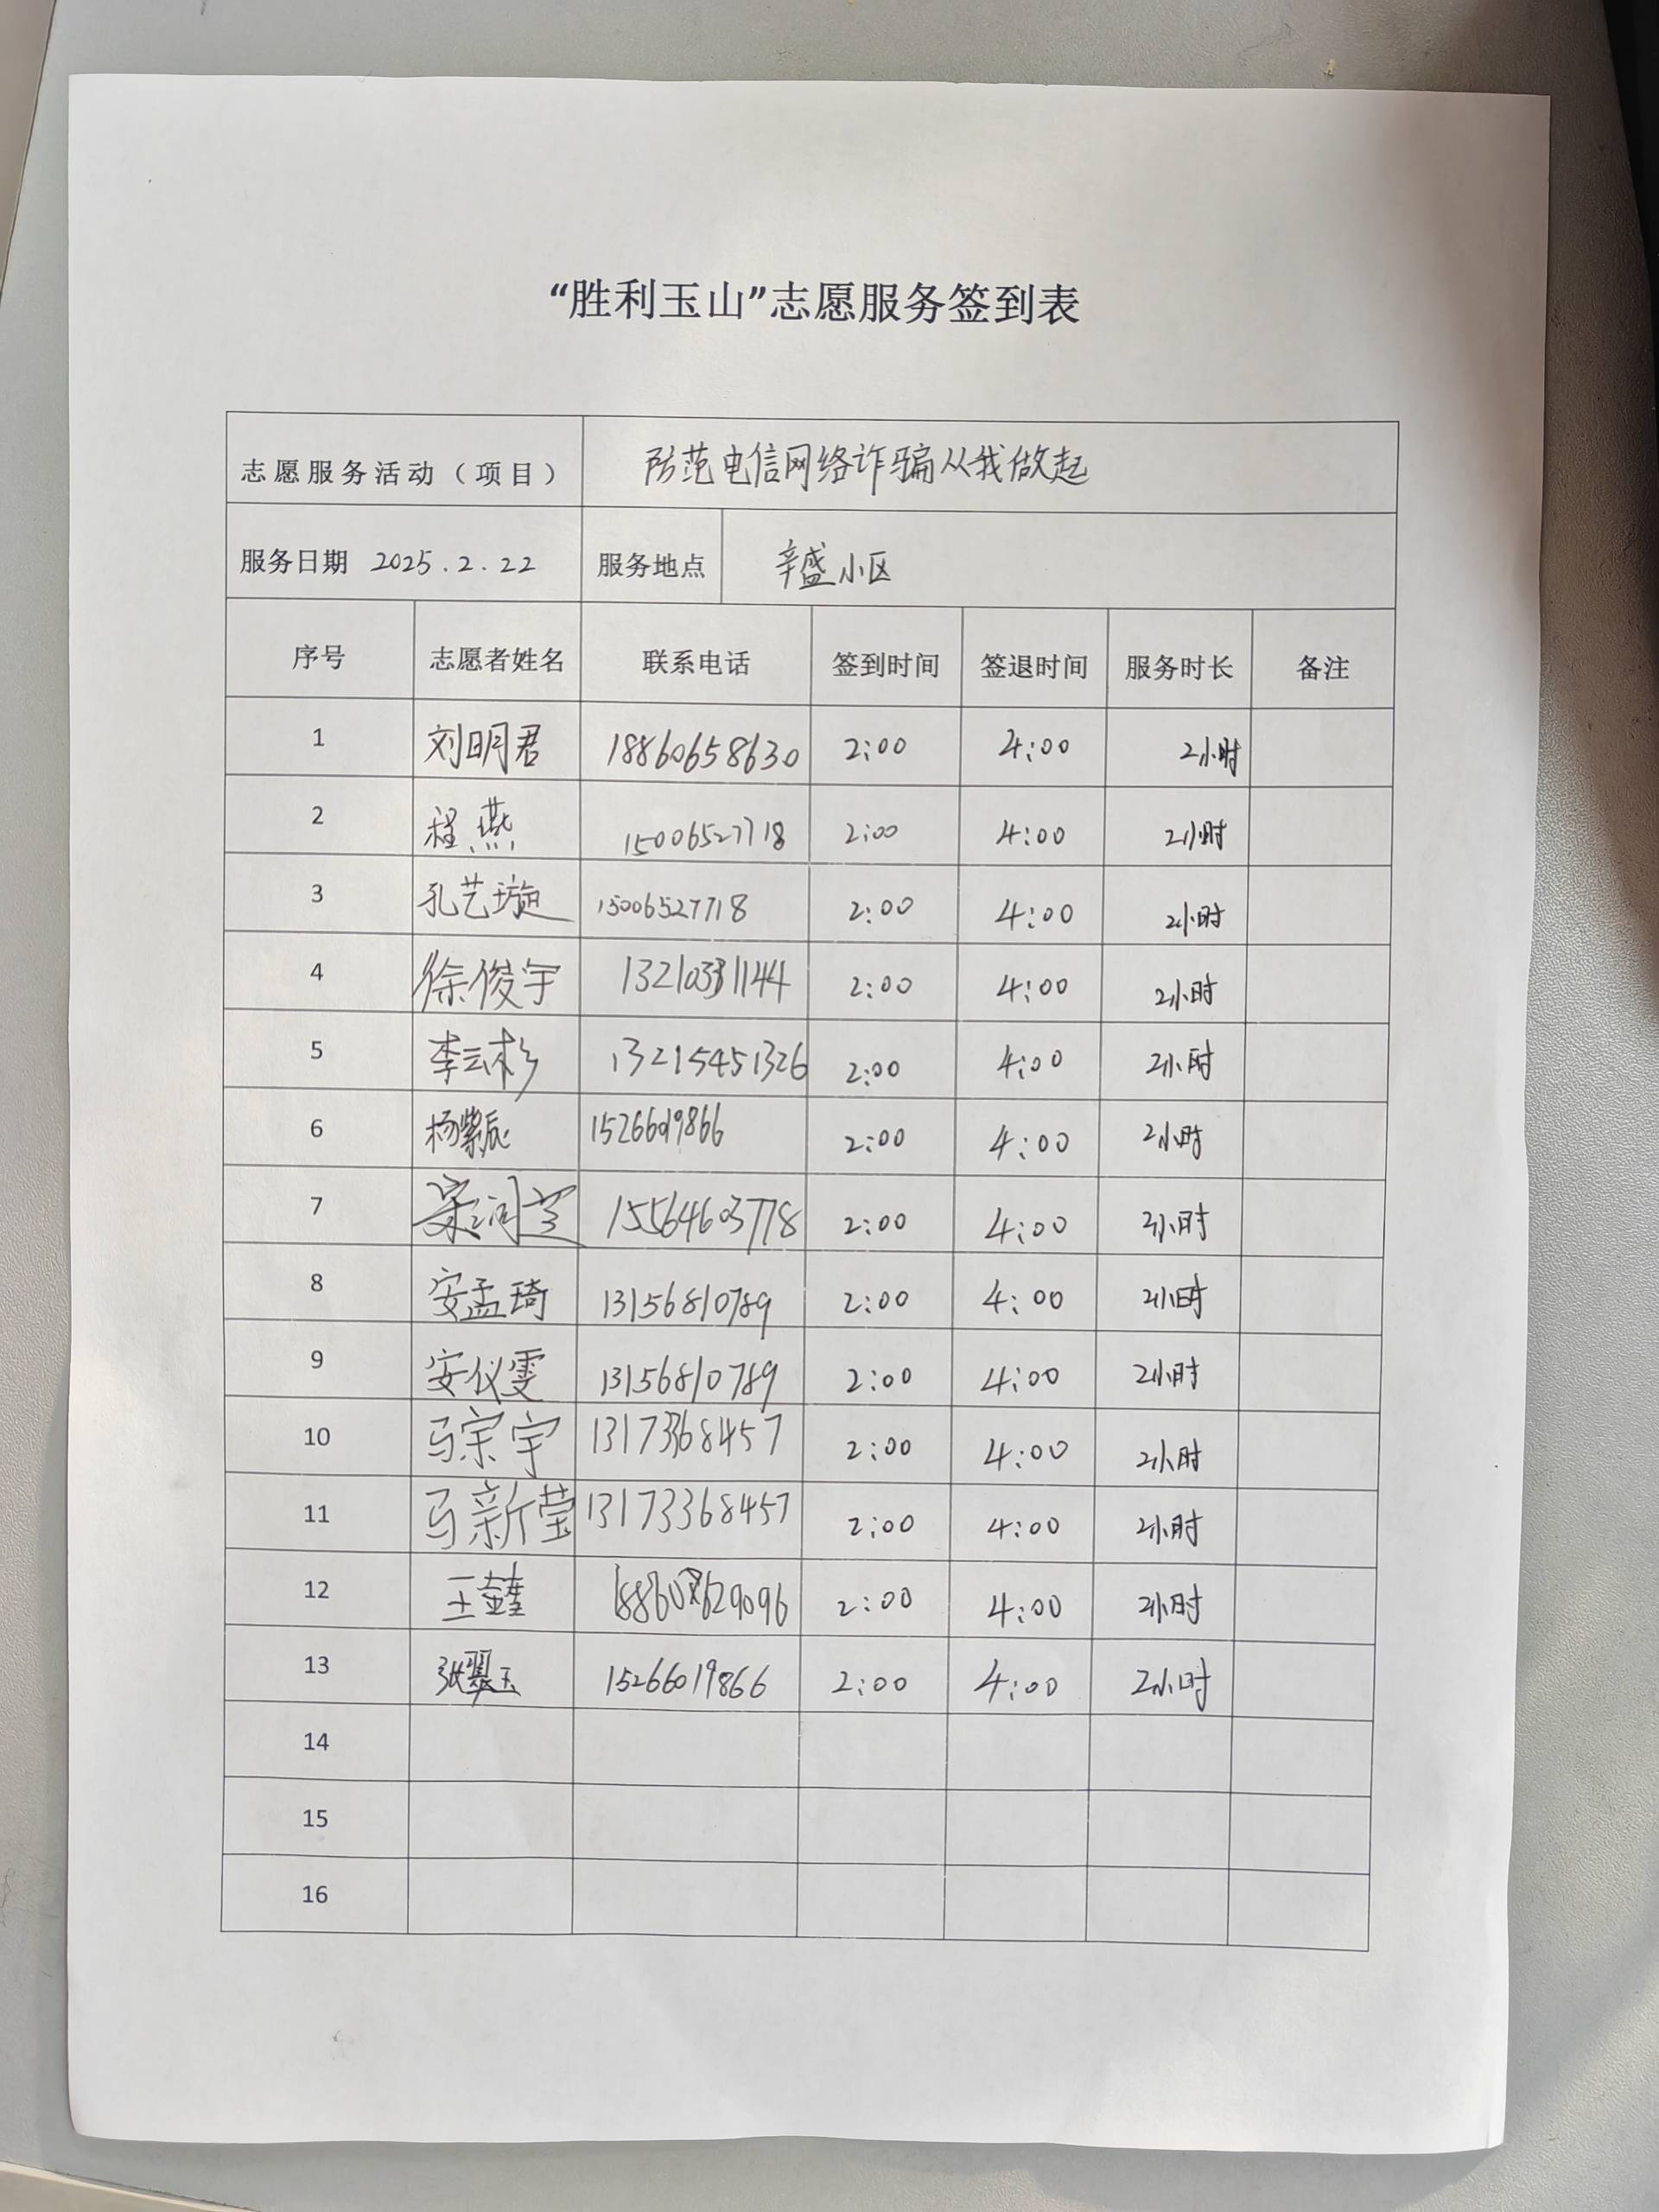 “胜利玉山”志愿服务签到表
志愿服务活动（项目） 防范电信网络诈骗从我做起
服务日期 2025.2.22 服务地点 辛盛小区
序号 志愿者姓名 联系电话 签到时间 签退时间 服务时长 备注
1 刘明君 18860658630 2:00 4:00 2小时
2 程燕 15006527718 2:00 4:00 2小时
3 孔艺璇 15006527718 2:00 4:00 2小时
4 徐俊宇 13210331144 2:00 4:00 2小时
5 李云杉 13215451326 2:00 4:00 2小时
6 杨紫辰 15266019866 2:00 4:00 2小时
7 宋润芝 15564603778 2:00 4:00 2小时
8 安孟琦 13156810789 2:00 4:00 2小时
9 安仪雯 13156810789 2:00 4:00 2小时
10 马宗宇 13173368457 2:00 4:00 2小时
11 马新莹 13173368457 2:00 4:00 2小时
12 王 2:00 4:00 2小时
13 张翠玉 15266019866 2:00 4:00 2小时
14
15
16